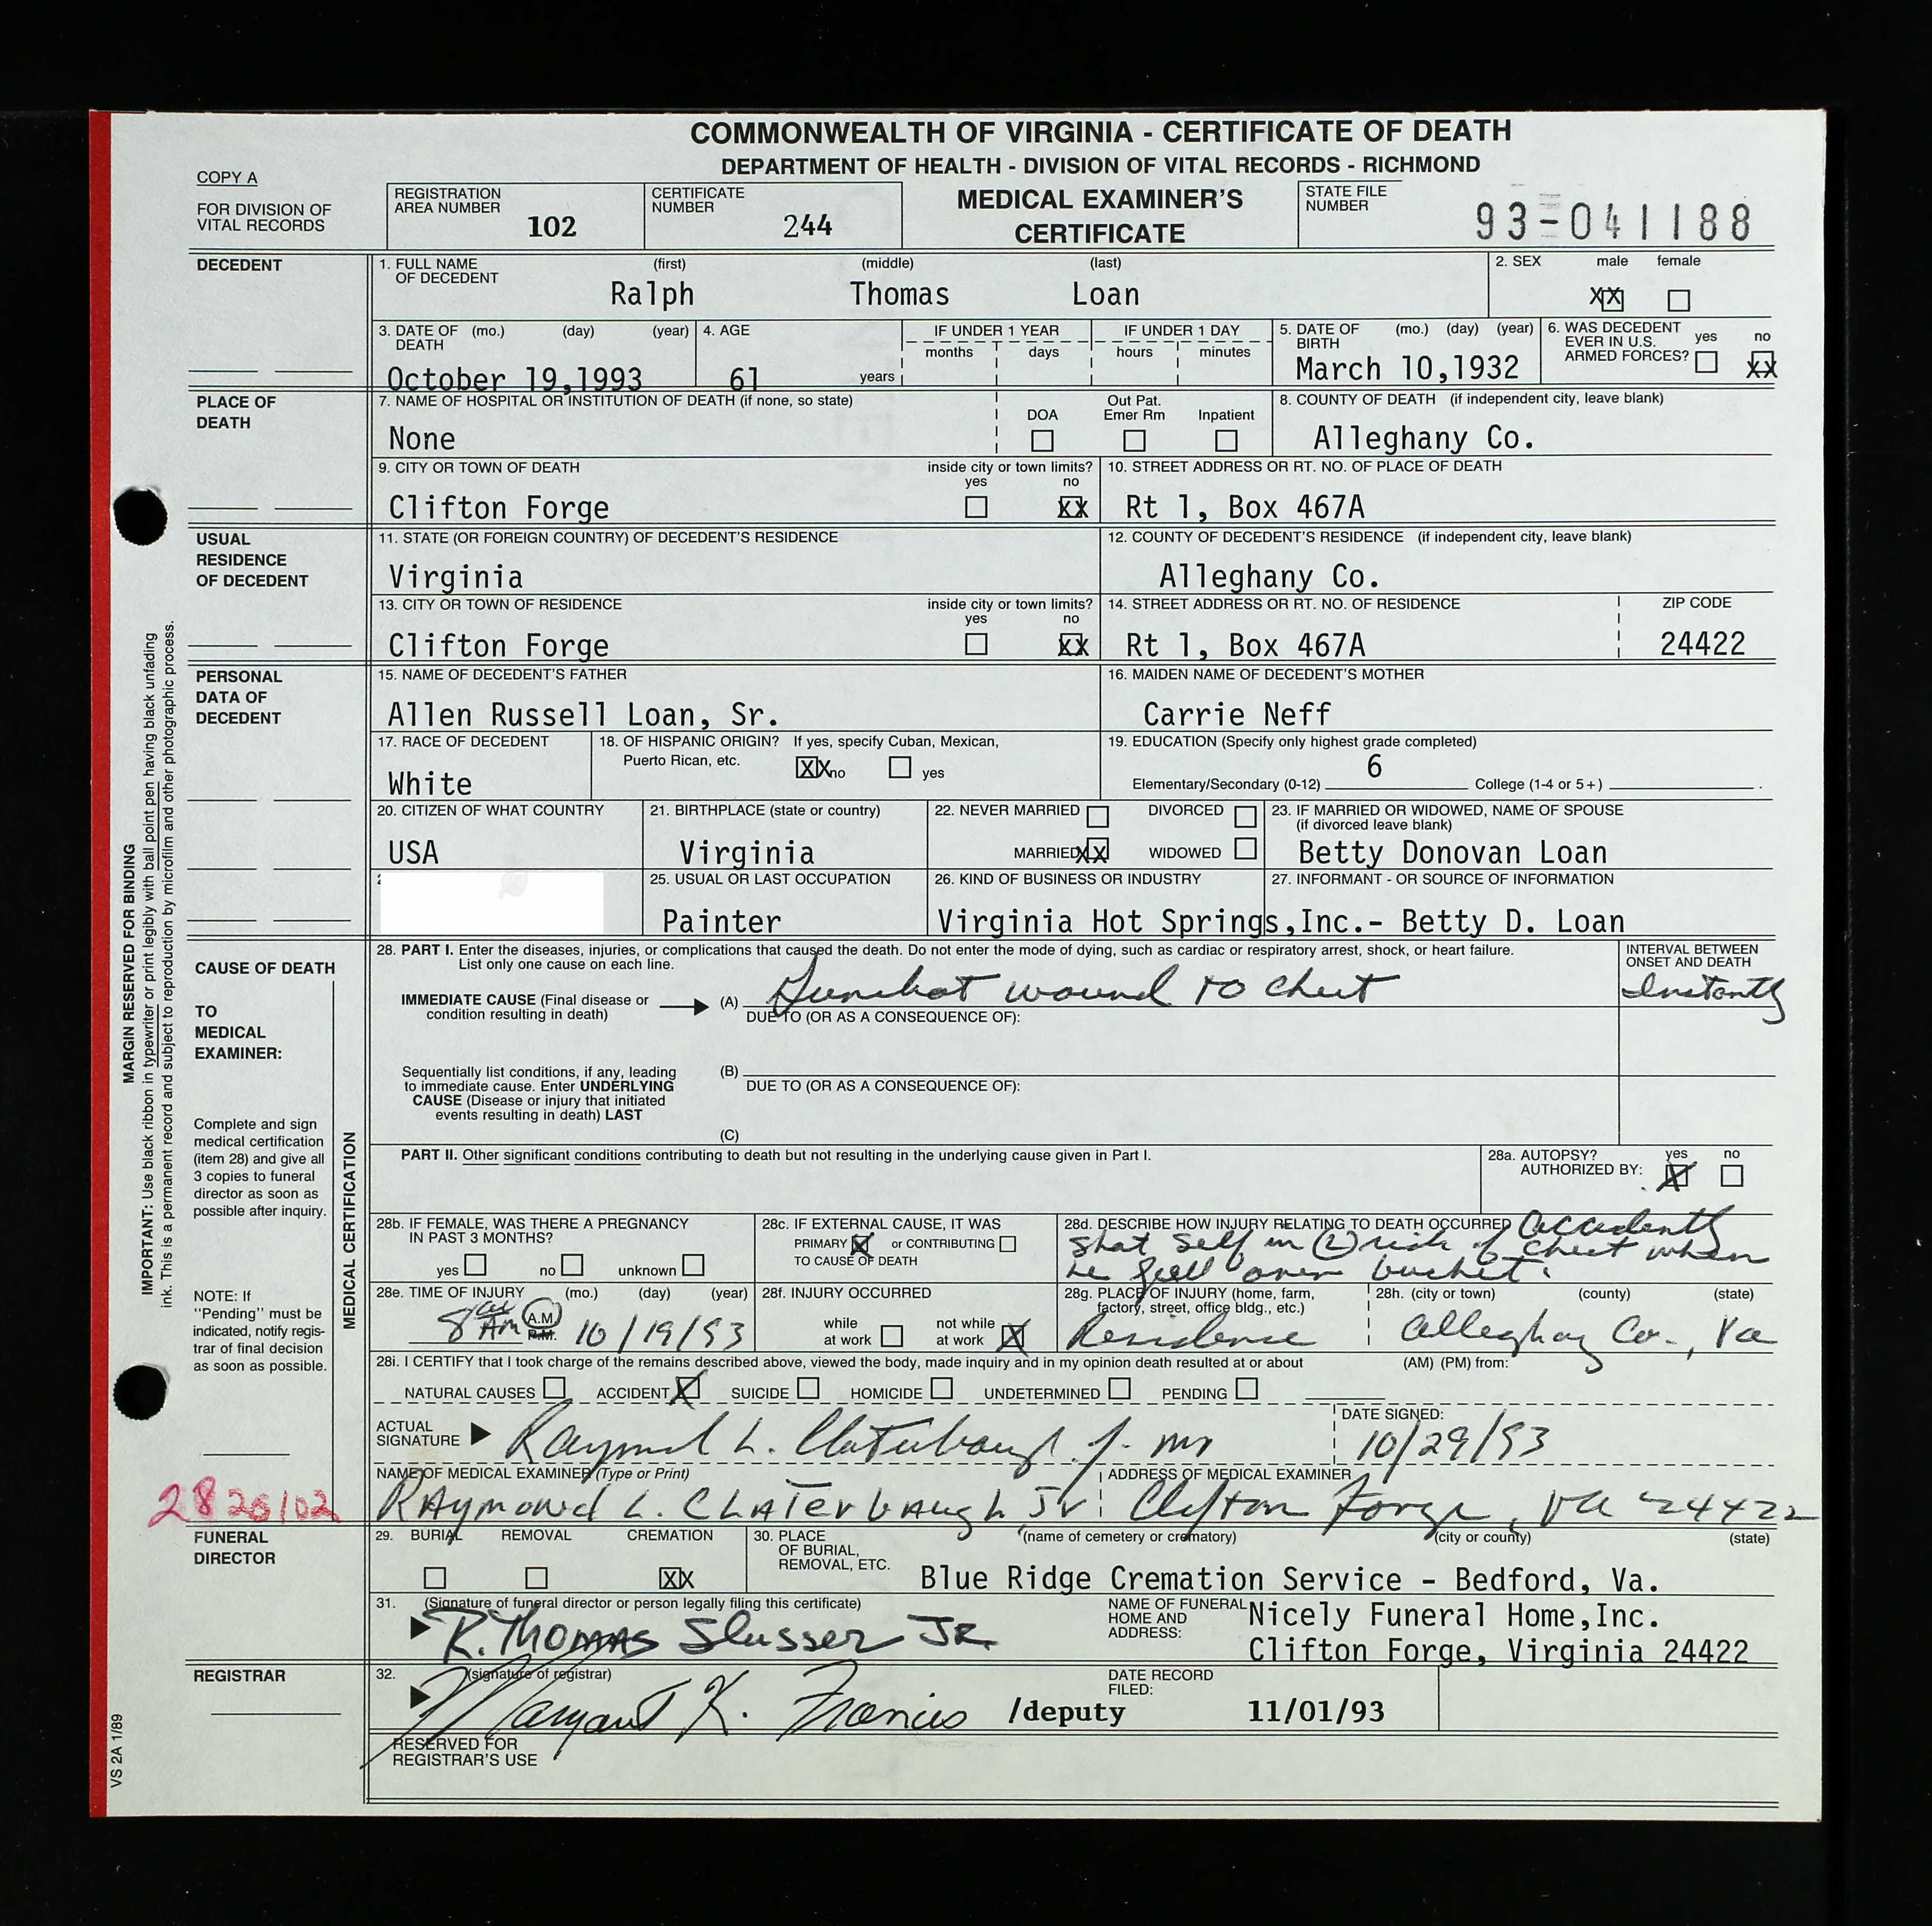 COMMONWEALTH OF VIRGINIA - CERTIFICATE OF DEATH
DEPARTMENT OF HEALTH - DIVISION OF VITAL RECORDS - RICHMOND
COPY A
FOR DIVISION OF
VITAL RECORDS
REGISTRATION
AREA NUMBER 102
CERTIFICATE
NUMBER 244
MEDICAL EXAMINER'S
CERTIFICATE
STATE FILE
NUMBER 93-041188
DECEDENT
1. FULL NAME (first) (middle) (last)
OF DECEDENT
Ralph Thomas Loan
2. SEX male female
XX
3. DATE OF (mo.) (day) (year)
DEATH
October 19,1993
4. AGE
61 years
IF UNDER 1 YEAR
months days
IF UNDER 1 DAY
hours minutes
5. DATE OF (mo.) (day) (year)
BIRTH
March 10,1932
6. WAS DECEDENT
EVER IN U.S.
ARMED FORCES? yes no
XX
PLACE OF
DEATH
7. NAME OF HOSPITAL OR INSTITUTION OF DEATH (if none, so state)
None
DOA
Out Pat.
Emer Rm
Inpatient
8. COUNTY OF DEATH (if independent city, leave blank)
Alleghany Co.
9. CITY OR TOWN OF DEATH
Clifton Forge
inside city or town limits?
yes no
XX
10. STREET ADDRESS OR RT. NO. OF PLACE OF DEATH
Rt 1, Box 467A
USUAL
RESIDENCE
OF DECEDENT
11. STATE (OR FOREIGN COUNTRY) OF DECEDENT'S RESIDENCE
Virginia
12. COUNTY OF DECEDENT'S RESIDENCE (if independent city, leave blank)
Alleghany Co.
13. CITY OR TOWN OF RESIDENCE
Clifton Forge
inside city or town limits?
yes no
XX
14. STREET ADDRESS OR RT. NO. OF RESIDENCE
Rt 1, Box 467A
ZIP CODE
24422
PERSONAL
DATA OF
DECEDENT
15. NAME OF DECEDENT'S FATHER
Allen Russell Loan, Sr.
16. MAIDEN NAME OF DECEDENT'S MOTHER
Carrie Neff
17. RACE OF DECEDENT
White
18. OF HISPANIC ORIGIN? If yes, specify Cuban, Mexican,
Puerto Rican, etc. XX no yes
19. EDUCATION (Specify only highest grade completed)
6
Elementary/Secondary (0-12) College (1-4 or 5+)
20. CITIZEN OF WHAT COUNTRY
USA
21. BIRTHPLACE (state or country)
Virginia
22. NEVER MARRIED DIVORCED
MARRIED XX WIDOWED
23. IF MARRIED OR WIDOWED, NAME OF SPOUSE
(if divorced leave blank)
Betty Donovan Loan
25. USUAL OR LAST OCCUPATION
Painter
26. KIND OF BUSINESS OR INDUSTRY
Virginia Hot Springs,Inc.-
27. INFORMANT - OR SOURCE OF INFORMATION
Betty D. Loan
CAUSE OF DEATH
TO
MEDICAL
EXAMINER:
Complete and sign
medical certification
(item 28) and give all
3 copies to funeral
director as soon as
possible after inquiry.
NOTE: If
"Pending" must be
indicated, notify regis-
trar of final decision
as soon as possible.
MEDICAL CERTIFICATION
28. PART I. Enter the diseases, injuries, or complications that caused the death. Do not enter the mode of dying, such as cardiac or respiratory arrest, shock, or heart failure.
List only one cause on each line.
INTERVAL BETWEEN
ONSET AND DEATH
IMMEDIATE CAUSE (Final disease or
condition resulting in death)
(A) Gunshot wound to chest
Instantly
DUE TO (OR AS A CONSEQUENCE OF):
Sequentially list conditions, if any, leading
to immediate cause. Enter UNDERLYING
CAUSE (Disease or injury that initiated
events resulting in death) LAST
(B)
DUE TO (OR AS A CONSEQUENCE OF):
(C)
PART II. Other significant conditions contributing to death but not resulting in the underlying cause given in Part I.
28a. AUTOPSY? yes no
AUTHORIZED BY: X
28b. IF FEMALE, WAS THERE A PREGNANCY
IN PAST 3 MONTHS?
yes no unknown
28c. IF EXTERNAL CAUSE, IT WAS
PRIMARY X or CONTRIBUTING
TO CAUSE OF DEATH
28d. DESCRIBE HOW INJURY RELATING TO DEATH OCCURRED accidently
shot self in (L) side of chest when
he fell over bucket.
28e. TIME OF INJURY (mo.) (day) (year)
8 AM A.M. P.M. 10/19/93
28f. INJURY OCCURRED
while
at work
not while
at work X
28g. PLACE OF INJURY (home, farm,
factory, street, office bldg., etc.)
Residence
28h. (city or town) (county) (state)
Alleghany Co., Va
28i. I CERTIFY that I took charge of the remains described above, viewed the body, made inquiry and in my opinion death resulted at or about (AM) (PM) from:
NATURAL CAUSES ACCIDENT X SUICIDE HOMICIDE UNDETERMINED PENDING
ACTUAL
SIGNATURE Raymond L. Claterbaugh Jr. MD
DATE SIGNED:
10/29/93
NAME OF MEDICAL EXAMINER (Type or Print)
Raymond L. Claterbaugh Jr
ADDRESS OF MEDICAL EXAMINER
Clifton Forge, Va 24422
FUNERAL
DIRECTOR
29. BURIAL REMOVAL CREMATION
XX
30. PLACE
OF BURIAL,
REMOVAL, ETC.
(name of cemetery or crematory) (city or county) (state)
Blue Ridge Cremation Service - Bedford, Va.
31. (Signature of funeral director or person legally filing this certificate)
R. Thomas Slusser Jr.
NAME OF FUNERAL
HOME AND
ADDRESS:
Nicely Funeral Home,Inc.
Clifton Forge, Virginia 24422
REGISTRAR
32. (signature of registrar)
Margaret K. Francis /deputy
DATE RECORD
FILED:
11/01/93
RESERVED FOR
REGISTRAR'S USE
MARGIN RESERVED FOR BINDING
IMPORTANT: Use black ribbon in typewriter or print legibly with ball point pen having black unfading
ink. This is a permanent record and subject to reproduction by microfilm and other photographic process.
VS 2A 1/89